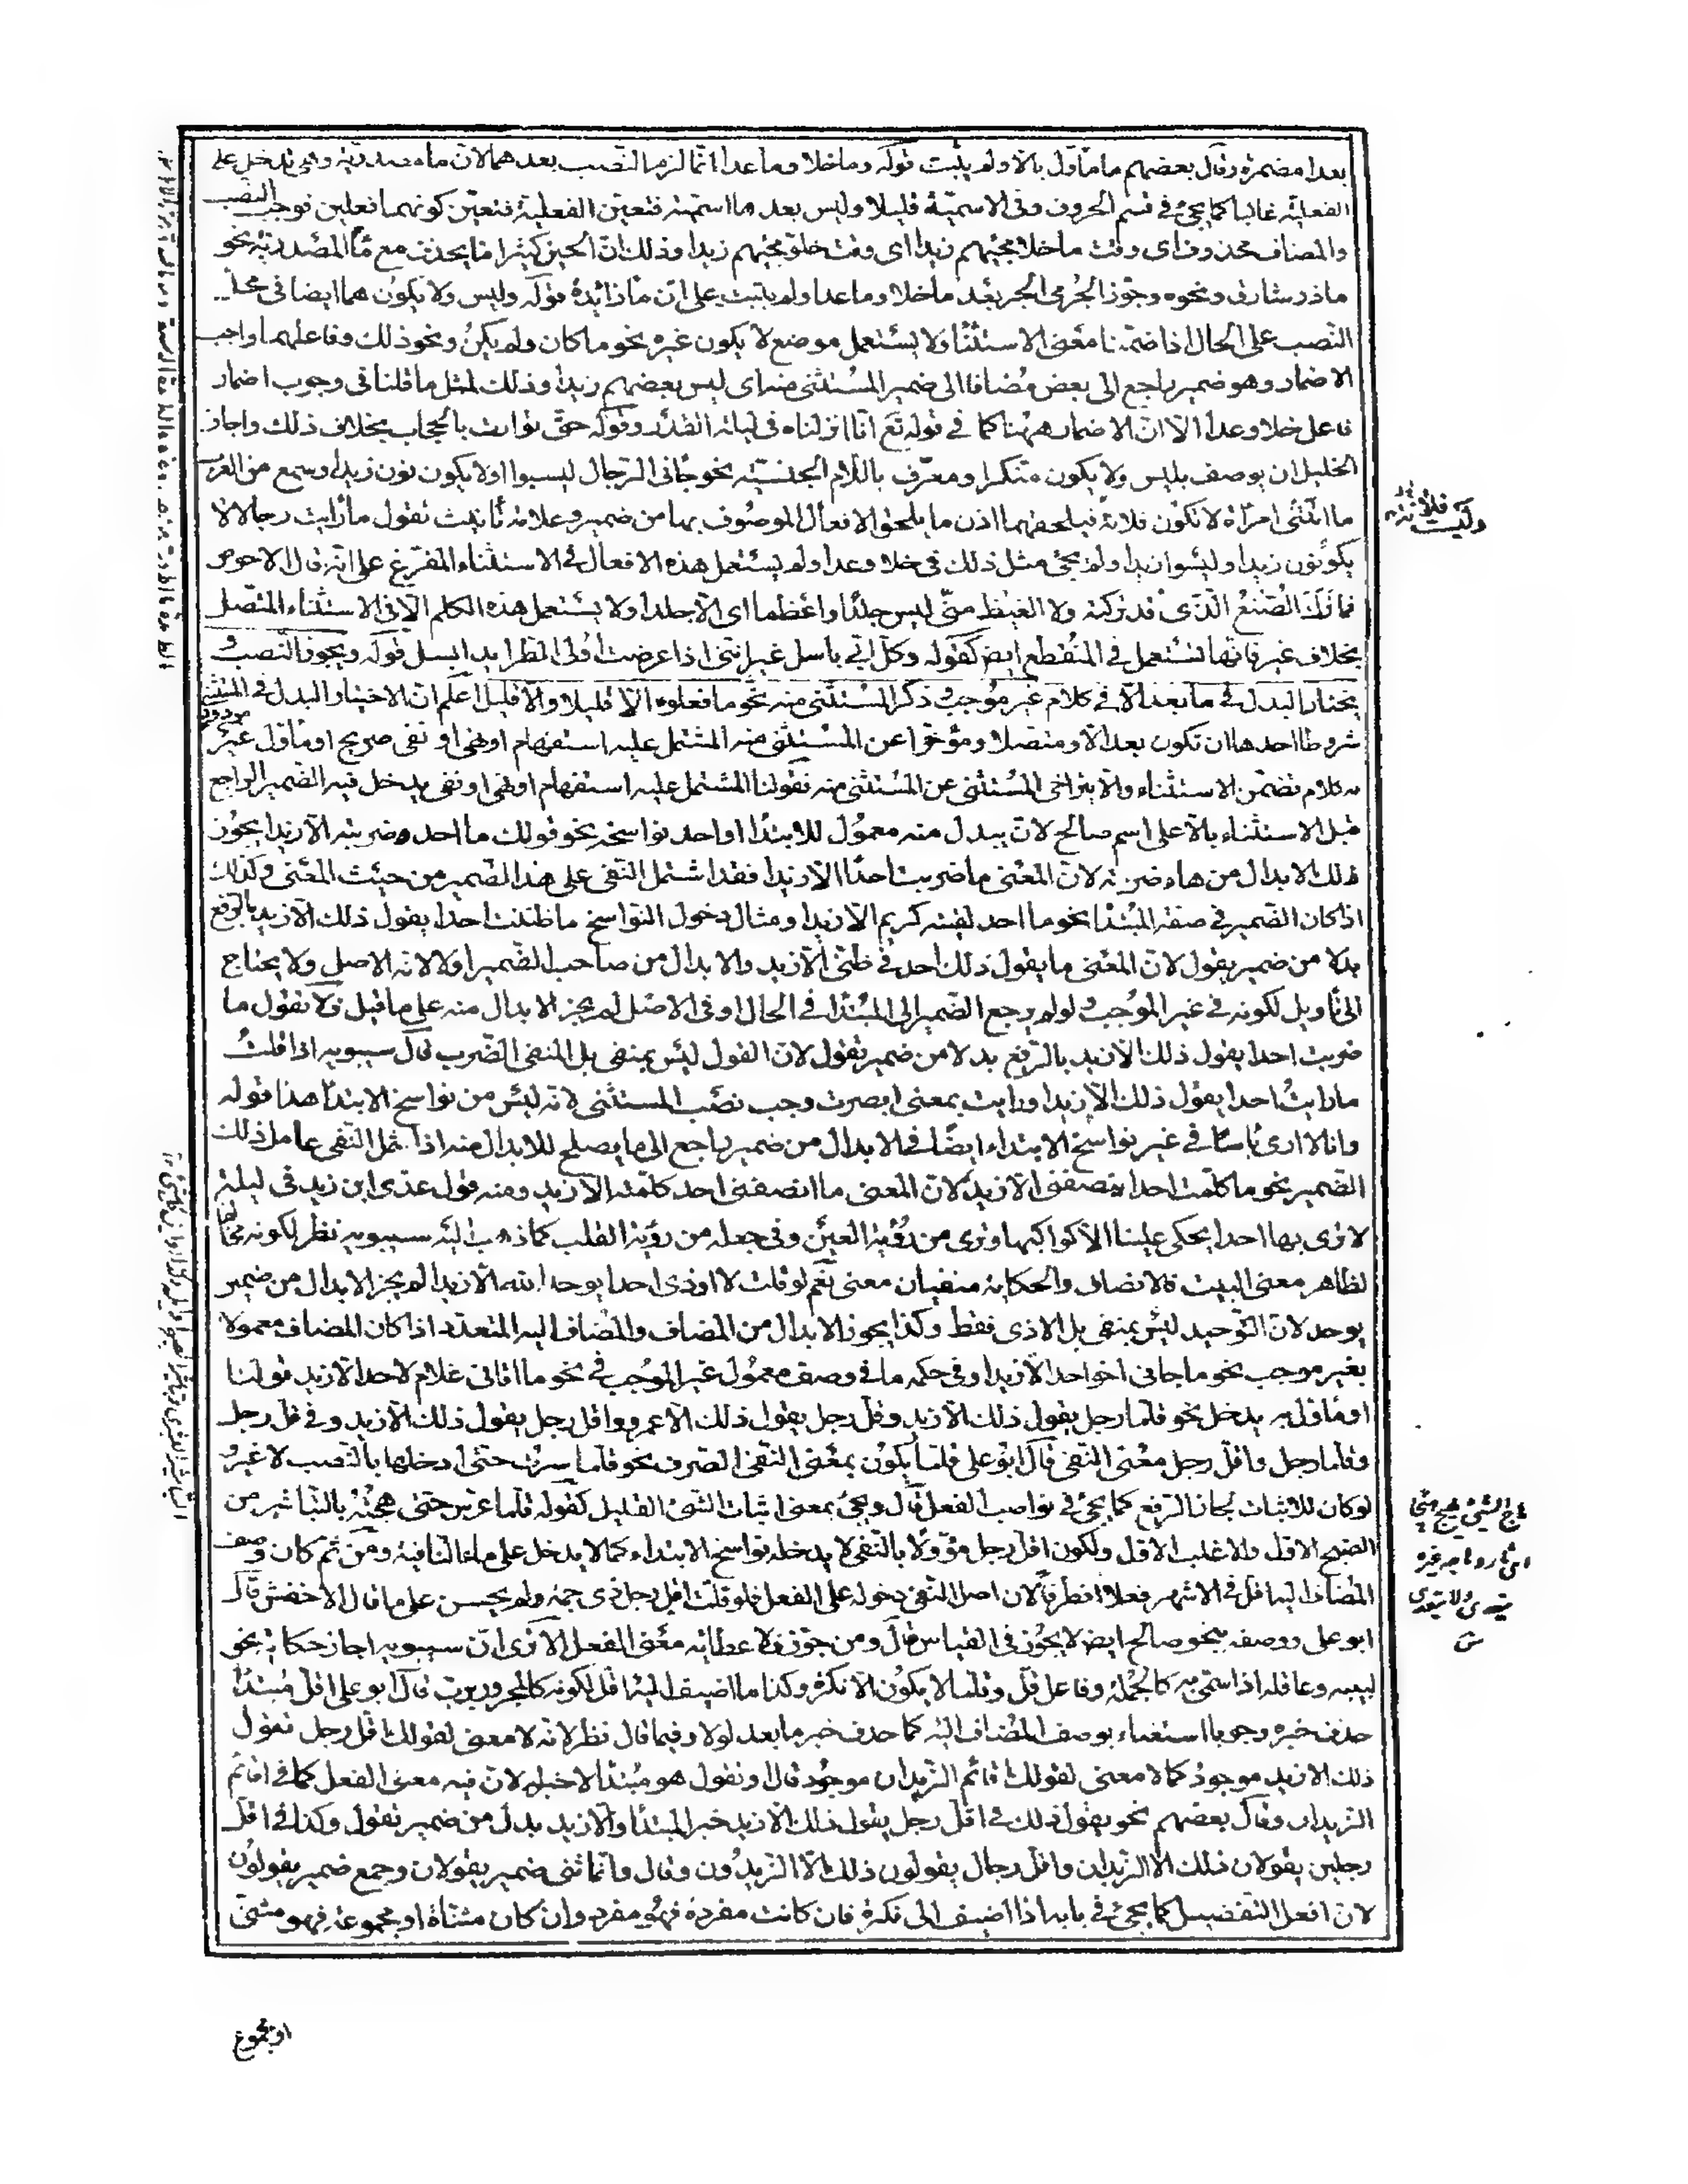 بعدا مضمرة وقال بعضهم ما مأوّل بالا ولم يثبت قوله وما خلا وما عدا انّما لزم النّصب بعدهما لانّ ما مصدريّة وهى تدخل على
الفعليّة غالبا كما يجئ فى قسم الحروف وفى الاسميّة قليلا وليس بعد ما اسميّة فتعيّن الفعليّة فتعيّن كونهما فعلين فوجب النصب
والمضاف محذوف اى وقت ما خلا مجيئهم زيدا اى وقت خلوّ مجيئهم زيدا وذلك انّ الحين كثيرا ما يحذف مع ما المصدريّة نحو
ما ذرّ شارق ونحوه وجوّز الجرمى الجر بعد ما خلا وما عدا ولم يثبت على ان ما زائدة قوله وليس ولا يكون هما ايضا فى محل
النّصب على الحال اذا ضمّنا معنى الاستثناء ولا يستعمل موضع لا يكون غيره نحو ما كان ولم يكن ونحو ذلك وفاعلهما واجب
الاضمار وهو ضمير راجع الى بعض مضافا الى ضمير المستثنى منه اى ليس بعضهم زيدا وذلك لمثل ما قلنا فى وجوب اضمار
فاعل خلا وعدا الّا انّ الاضمار ههنا كما فى قوله تع انّا انزلناه فى ليلة القدر وقوله حتّى توارت بالحجاب بخلاف ذلك واجاز
الخليل ان يوصف بليس ولا يكون متنكرا ومعرّف باللّام الجنسيّة نحو جائنى الرّجال ليسوا اولا يكونون زيدا وسمع من العرب
ما اتتنى امرأة لا تكون فلانة فيلحقهما اذن ما يلحق الافعال الموصوف بها من ضمير وعلامة تأنيث تقول ما رأيت رجالا لا
يكونون زيدا وليسوا زيدا ولم يجئ مثل ذلك فى خلا وعدا ولم يستعمل هذه الافعال فى الاستثناء المفرّغ على انّه قال الاحوص
فما ترك الصّنع الّذى قد تركته ولا الغيظ منّى ليس جلدا واعظما اى الّا جلدا ولا يستعمل هذه الكلم الّا فى الاستثناء المتّصل
بخلاف غير فانّها تستعمل فى المنقطع ايض كقوله وكلّ ابىّ باسل غير انّنى اذا عرضت اولى الطّرايد ابسل قوله ويجوز النّصب و
يختار البدل فى ما بعد الّا فى كلام غير موجب وذكر المستثنى منه نحو ما فعلوه الّا قليلا والّا قليل اعلم انّ لاختيار البدل فى المستثنى
شروطا احدها ان تكون بعد الّا ومتصلا ومؤخّرا عن المستثنى منه المشتمل عليه استفهام او نهى او نفى صريح او مأوّل غير مردود
به كلام تضمّن الاستثناء والّا يتراخى المستثنى عن المستثنى منه فقولنا المشتمل عليه استفهام او نهى او نفى يدخل فيه الضّمير الراجع
قبل الاستثناء بالّا على اسم صالح لان يبدل منه معمول للابتداء او احد نواسخه نحو قولك ما احد ضربته الّا زيدا يجوز
ذلك الابدال من هاء ضربته لانّ المعنى ما ضربت احدا الّا زيدا فقد اشتمل النّفى على هذا الضّمير من حيث المعنى وكذلك
اذا كان الضّمير فى صفة المبتدأ نحو ما احد لقيته كريم الّا زيدا ومثال دخول النّواسخ ما ظننت احدا يقول ذلك الّا زيد بالرّفع
بدلا من ضمير يقول لانّ المعنى ما يقول ذلك احد فى ظنّى الّا زيد والابدال من صاحب الضّمير اولى لانّه الاصل ولا يحتاج
الى تأويل لكونه فى غير الموجب ولو لم يرجع الضّمير الى المبتدأ فى الحال او فى الاصل لم يجز الابدال منه على ما قيل فلا تقول ما
ضربت احدا يقول ذلك الّا زيد بالرّفع بدلا من ضمير يقول لانّ القول ليس بمنفى بل المنفى الضّرب قال سيبويه اذا قلت
ما رايت احدا يقول ذلك الّا زيدا ورايت بمعنى ابصرت وجب نصب المستثنى لانّه ليس من نواسخ الابتداء هذا قوله
وانا لا ارى بأسا فى غير نواسخ الابتداء ايضا فى الابدال من ضمير راجع الى ما يصلح للابدال منه اذا شمل النّفى عامل ذلك
الضّمير نحو ما كلّمت احدا ينصفنى الّا زيد لانّ المعنى ما انصفنى احد كلّمته الّا زيد ومنه قول عدّى ابن زيد فى ليلة
لا نرى بها احدا يحكى علينا الّا كواكبها ونرى من رؤية العين وفى جعله من رؤية القلب كما ذهب اليه سيبويه نظر لكونه مخالفا
لظاهر معنى البيت فالانصاف والحكاية منفيان معنى نعم لو قلت لا اوذى احدا يوحد الله الّا زيدا لم يجز الابدال من ضمير
يوحد لانّ التّوحيد ليس بمنفى بل الاذى فقط وكذا يجوز الابدال من المضاف والمضاف اليه المتعدّد اذا كان المضاف معمولا
بغير موجب نحو ما جائنى اخو احد الّا زيدا وفى حكمه ما فى وصف معمول غير الموجب فى نحو ما اتانى غلام لاحد الّا زيد قولنا
او مأوّل به يدخل نحو قلّما رجل يقول ذلك الّا زيد وقلّ رجل يقول ذلك الّا عمرو واقلّ رجل يقول ذلك الّا زيد وفى قلّ رجل
وقلّما رجل واقلّ رجل معنى النّفى قال ابو على قلّما يكون بمعنى النّفى الصّرف نحو قلّما سرت حتّى ادخلها بالنّصب لا غير و
لو كان للاثبات لجاز الرّفع كما يجئ فى نواصب الفعل قال ويجئ بمعنى اثبات الشّئ القليل كقوله قلّما عرّس حتّى هجته بالتّباشير من
الصّبح الاوّل والاغلب الاوّل ولكون اقلّ رجل مؤوّلا بالنّفى لا يدخله نواسخ الابتداء كما لا يدخل على ما النّافية ومن ثمّ كان وصف
المضاف اليه اقلّ فى الاشهر فعلا او ظرفا لانّ اصل النّفى دخوله على الفعل فلو قلت اقلّ رجل ذى جمّة ولم يحسن على ما قال الاخفش قال
ابو على ووصفه بنحو صالح ايض لا يجوز فى القياس قال ومن جوّز فلاعطائه معنى الفعل الا ترى انّ سيبويه اجاز حكاية نحو
لبيبة وعاقلة اذا سمّى به كالجملة وفاعل قلّ وقلّما لا يكون الّا نكرة وكذا ما اضيف اليه اقلّ لكونه كالمجرور بربّ قال ابو على اقلّ مبتدأ
حذف خبره وجوبا استغناء بوصف المضاف اليه كما حذف خبر ما بعد لولا وفيما قال نظر لانّه لا معنى لقولك اقلّ رجل نقول
ذلك الّا زيد موجود كما لا معنى لقولك اقائم الزّيدان موجود قال او نقول هو مبتدأ لا خبر له لانّ فيه معنى الفعل كما فى اقائم
الزّيدان وقال بعضهم نحو يقول ذلك فى اقلّ رجل يقول ذلك الّا زيد خبر المبتدأ والّا زيد بدل من ضمير نقول وكذا فى اقلّ
رجلين يقولان ذلك الّا الزّيدان واقلّ رجال يقولون ذلك الّا الزّيدون وقال وانّما ثنّى ضمير يقولان وجمع ضمير يقولون
لانّ افعل التّفضيل كما يجئ فى بابه اذا اضيف الى نكرة فان كانت مفردة فهو مفرد وان كان مثنّاة او مجموعة فهو مثنّى
او مجموع
وليست فلانة